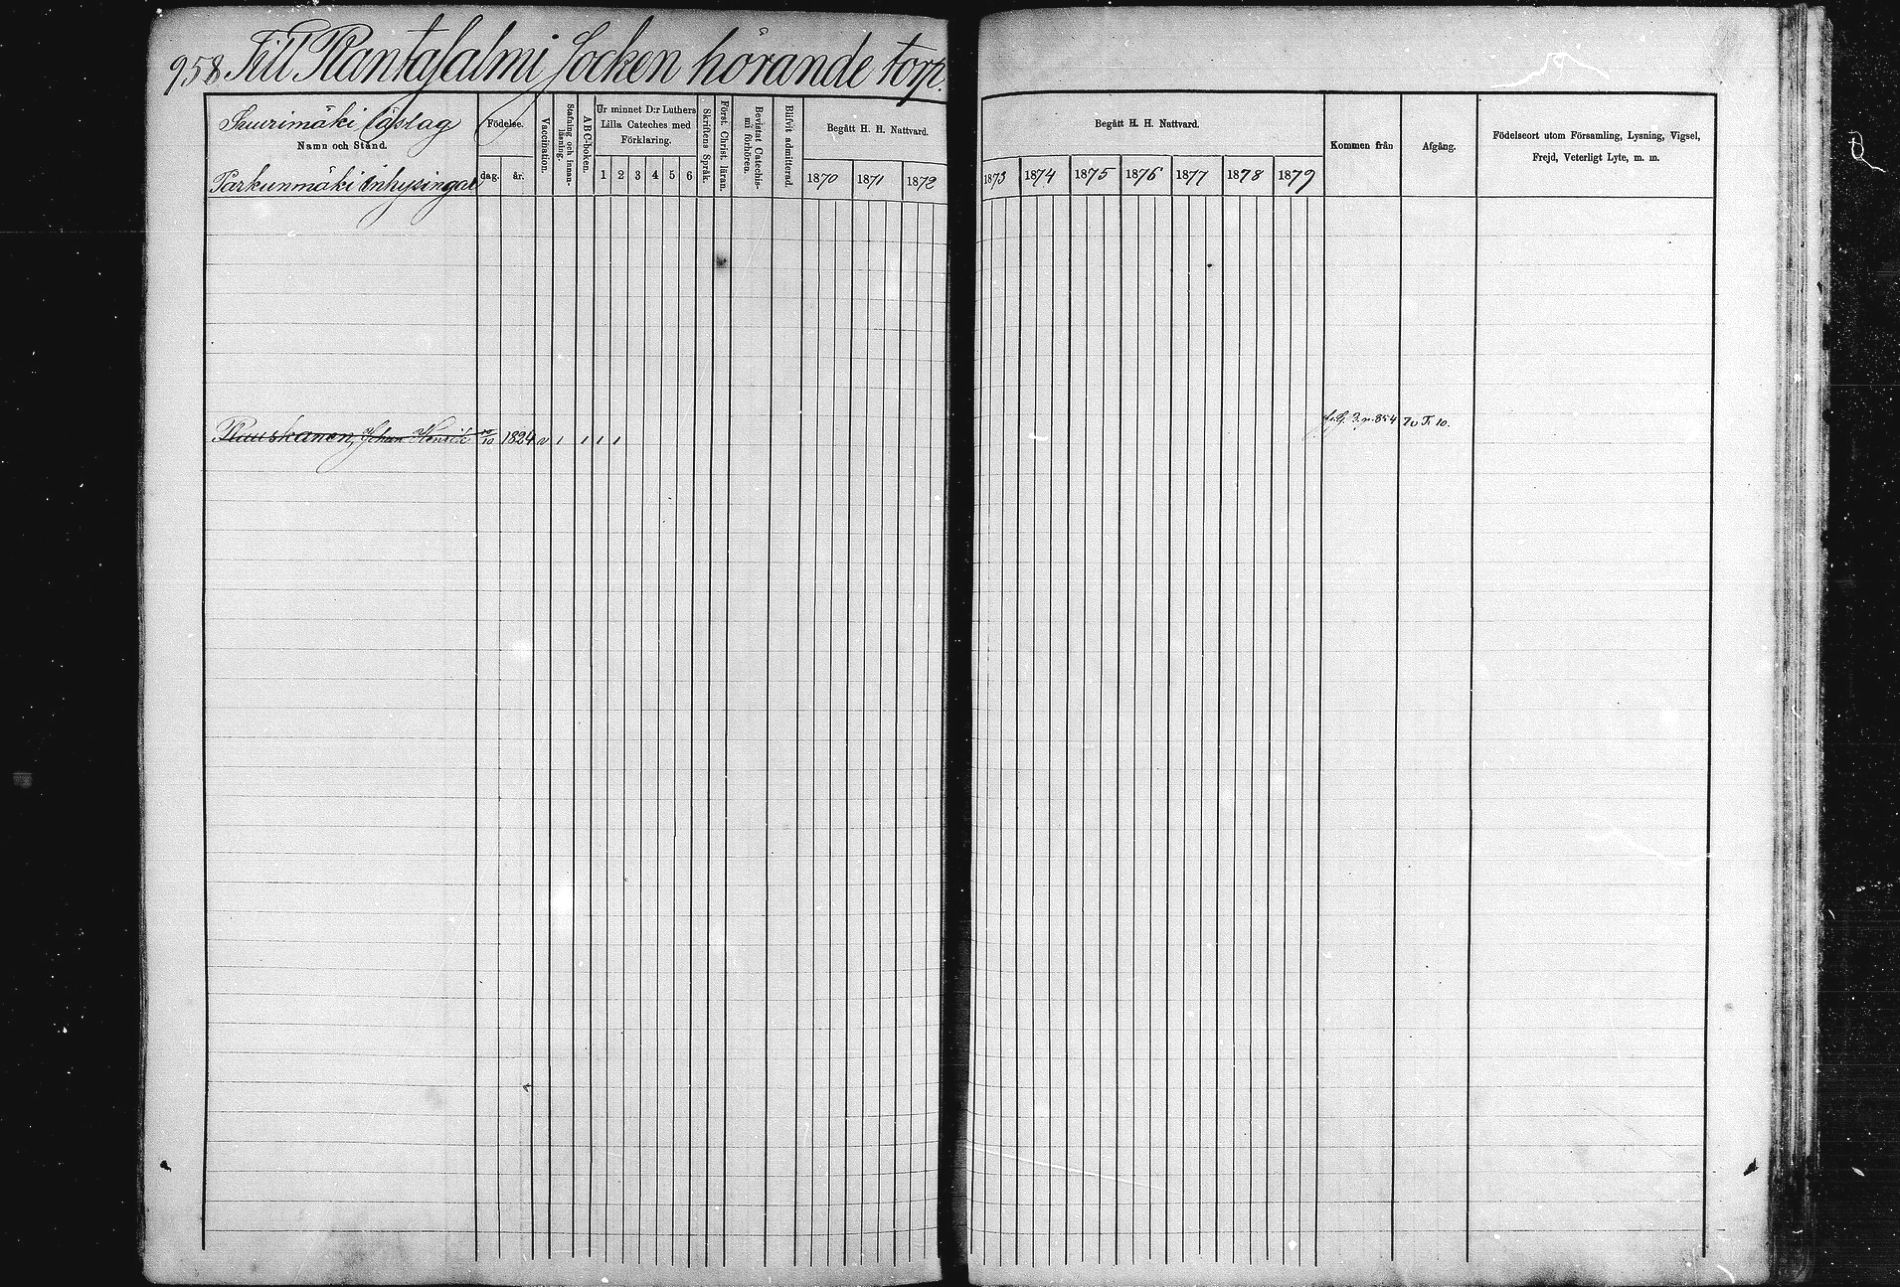 958. Till Rantasalmi Socken hörande torp.
Saurimäki läslag
Namn och Stånd.
Parkunmäki Inhysingar
Födelse.
dag. år.
Vaccination.
Stafning och innan-läsning.
ABC-boken.
Ur minnet D:r Luthers
Lilla Cateches med
Förklaring.
1 2 3 4 5 6
Skriftens Språk.
Först. Christ. läran.
Bevistat Catechis-mi förhören.
Blifvit admitterad.
Begått H. H. Nattvard.
1870 1871 1872
Begått H. H. Nattvard.
1873 1874 1875 1876 1877 1878 1879
Kommen från
Afgång.
Födelseort utom Församling, Lysning, Vigsel,
Frejd, Veterligt Lyte, m. m.
Rauskanen, Johan Henrik 10 1824 v 1 1 1 1 1 p. 854 T. 10.